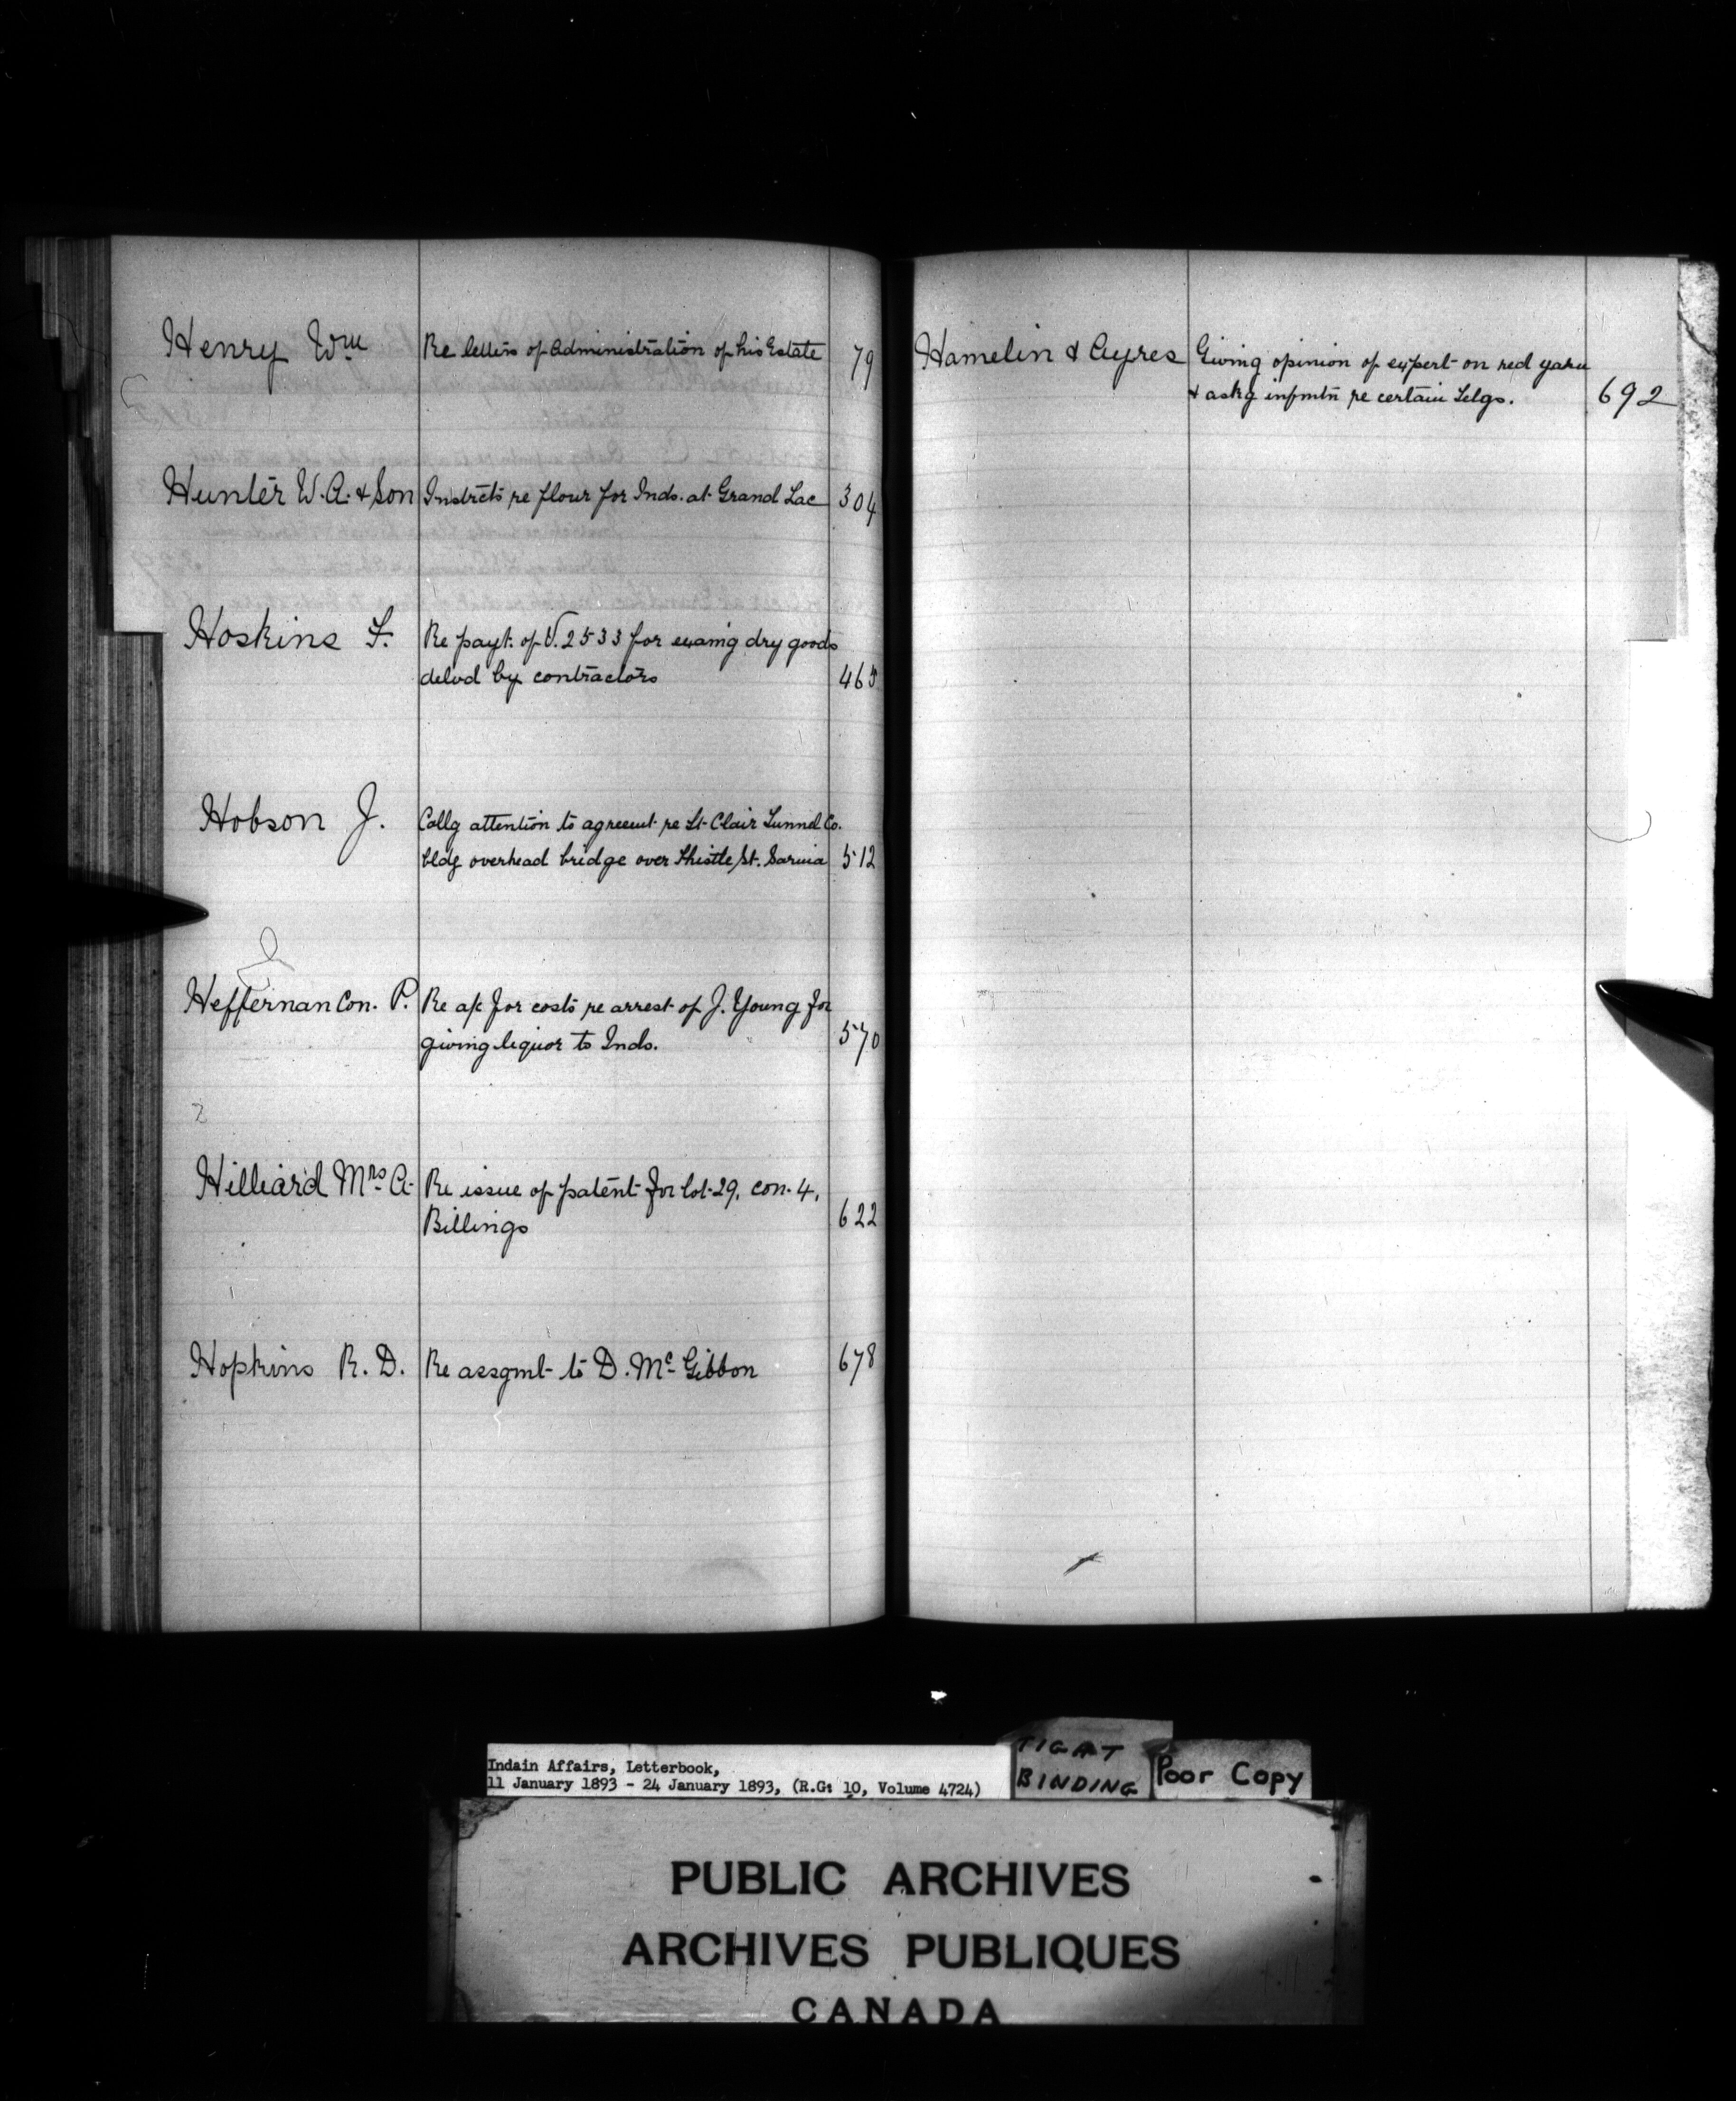 Henry Wm Re letters of Administration of his Estate 79
Hunter W. A. & Son Instrcts re flour for Inds. at Grand Lac 304
Hoskins F. Re payt. of V. 2533 for examg dry goods
delvd by contractors 465
Hobson J. Callg attention to agreemt re St. Clair Tunnel Co.
bldg overhead bridge over Thistle St. Sarnia 512
Heffernan Con. P. Re a/c for costs re arrest of J. Young for
giving liquor to Inds. 570
Hilliard Mrs A. Re issue of patent for lot 29, con. 4,
Billings 622
Hopkins R. D. Re assgmt to D. McGibbon 678
Hamelin & Ayres Giving opinion of expert on red yarn
& askg infmtn re certain 692
Indain Affairs, Letterbook,
11 January 1893 - 24 January 1893, (R.G: 10, Volume 4724)
TIGHT
BINDING
Poor Copy
PUBLIC ARCHIVES
ARCHIVES PUBLIQUES
CANADA